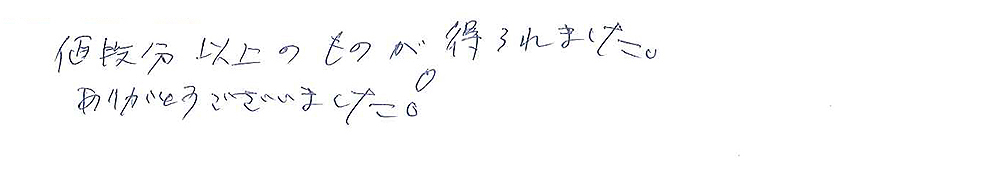 値段分以上のものが得られました。
ありがとうございました。